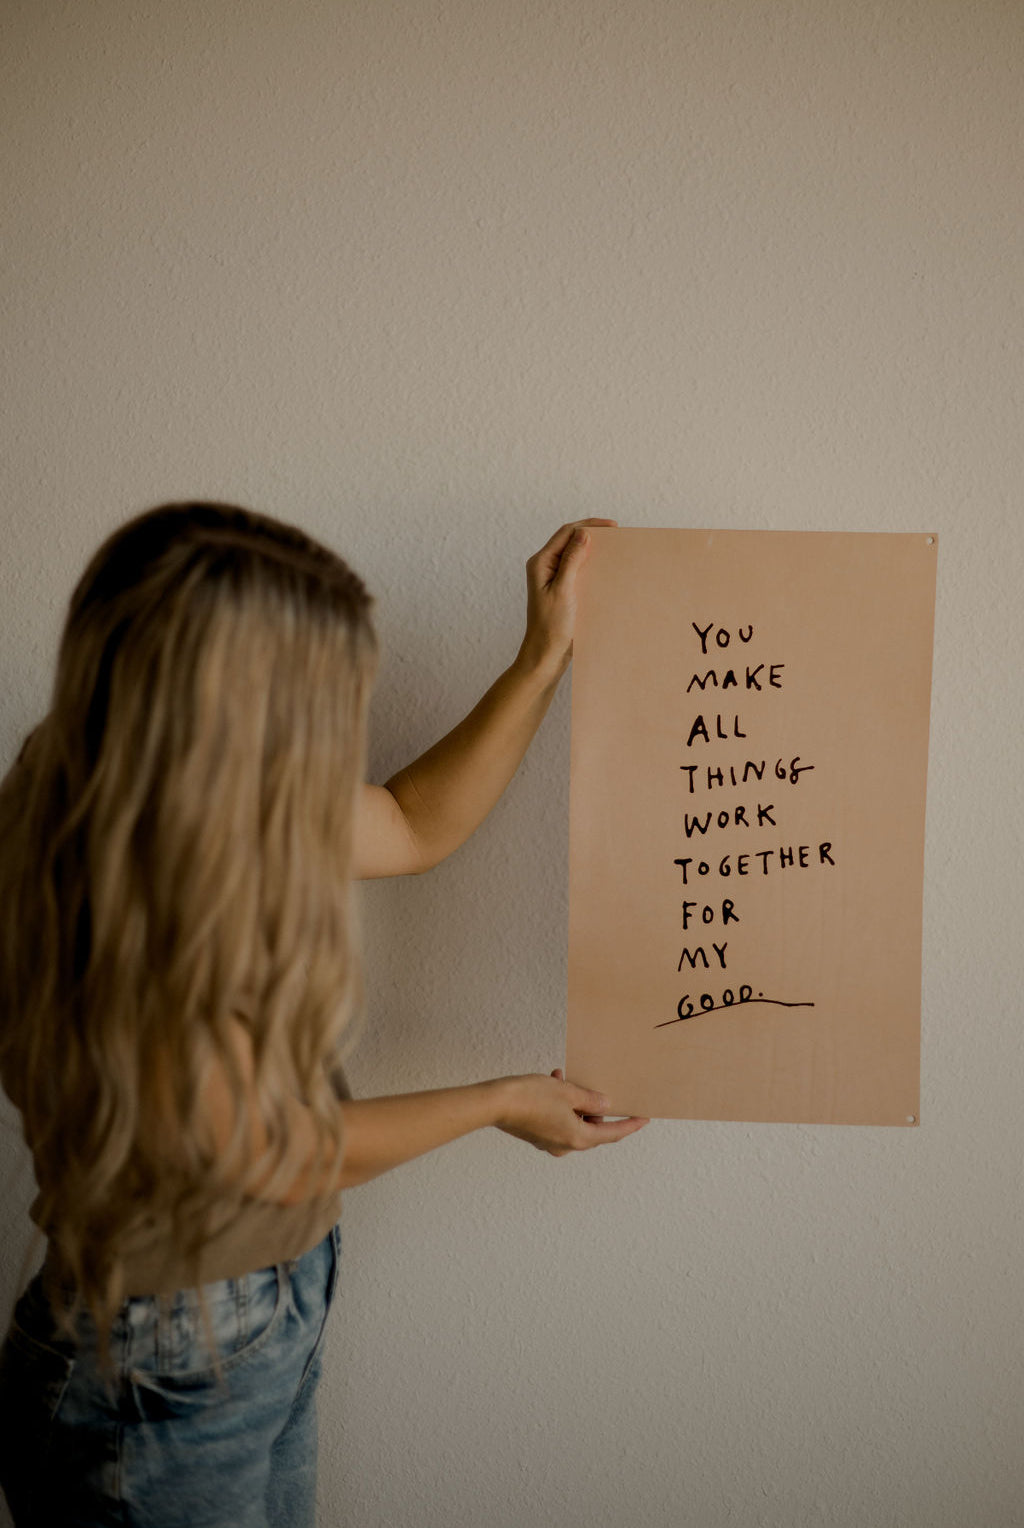 YOU
MAKE
ALL
THINGS
WORK
TOGETHER
FOR
MY
GOOD.